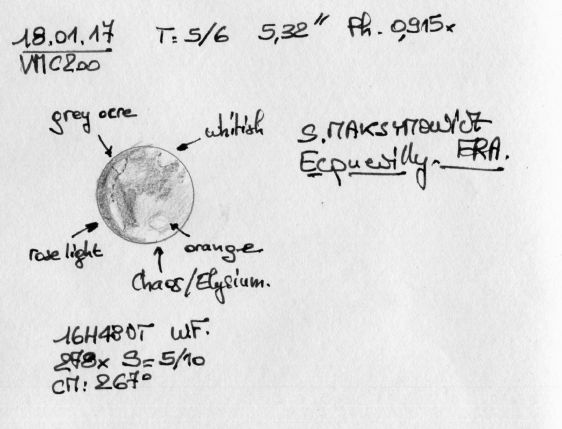 18.01.17 T: 5/6 5,32" Ph. 0,915x
VMC200
grey ocre
whitish
S. MAKSYMOWICZ
Ecquevilly. FRA.
rose light
orange
Chaos/Elysium.
16H48UT WF.
278x S= 5/10
CM: 267°